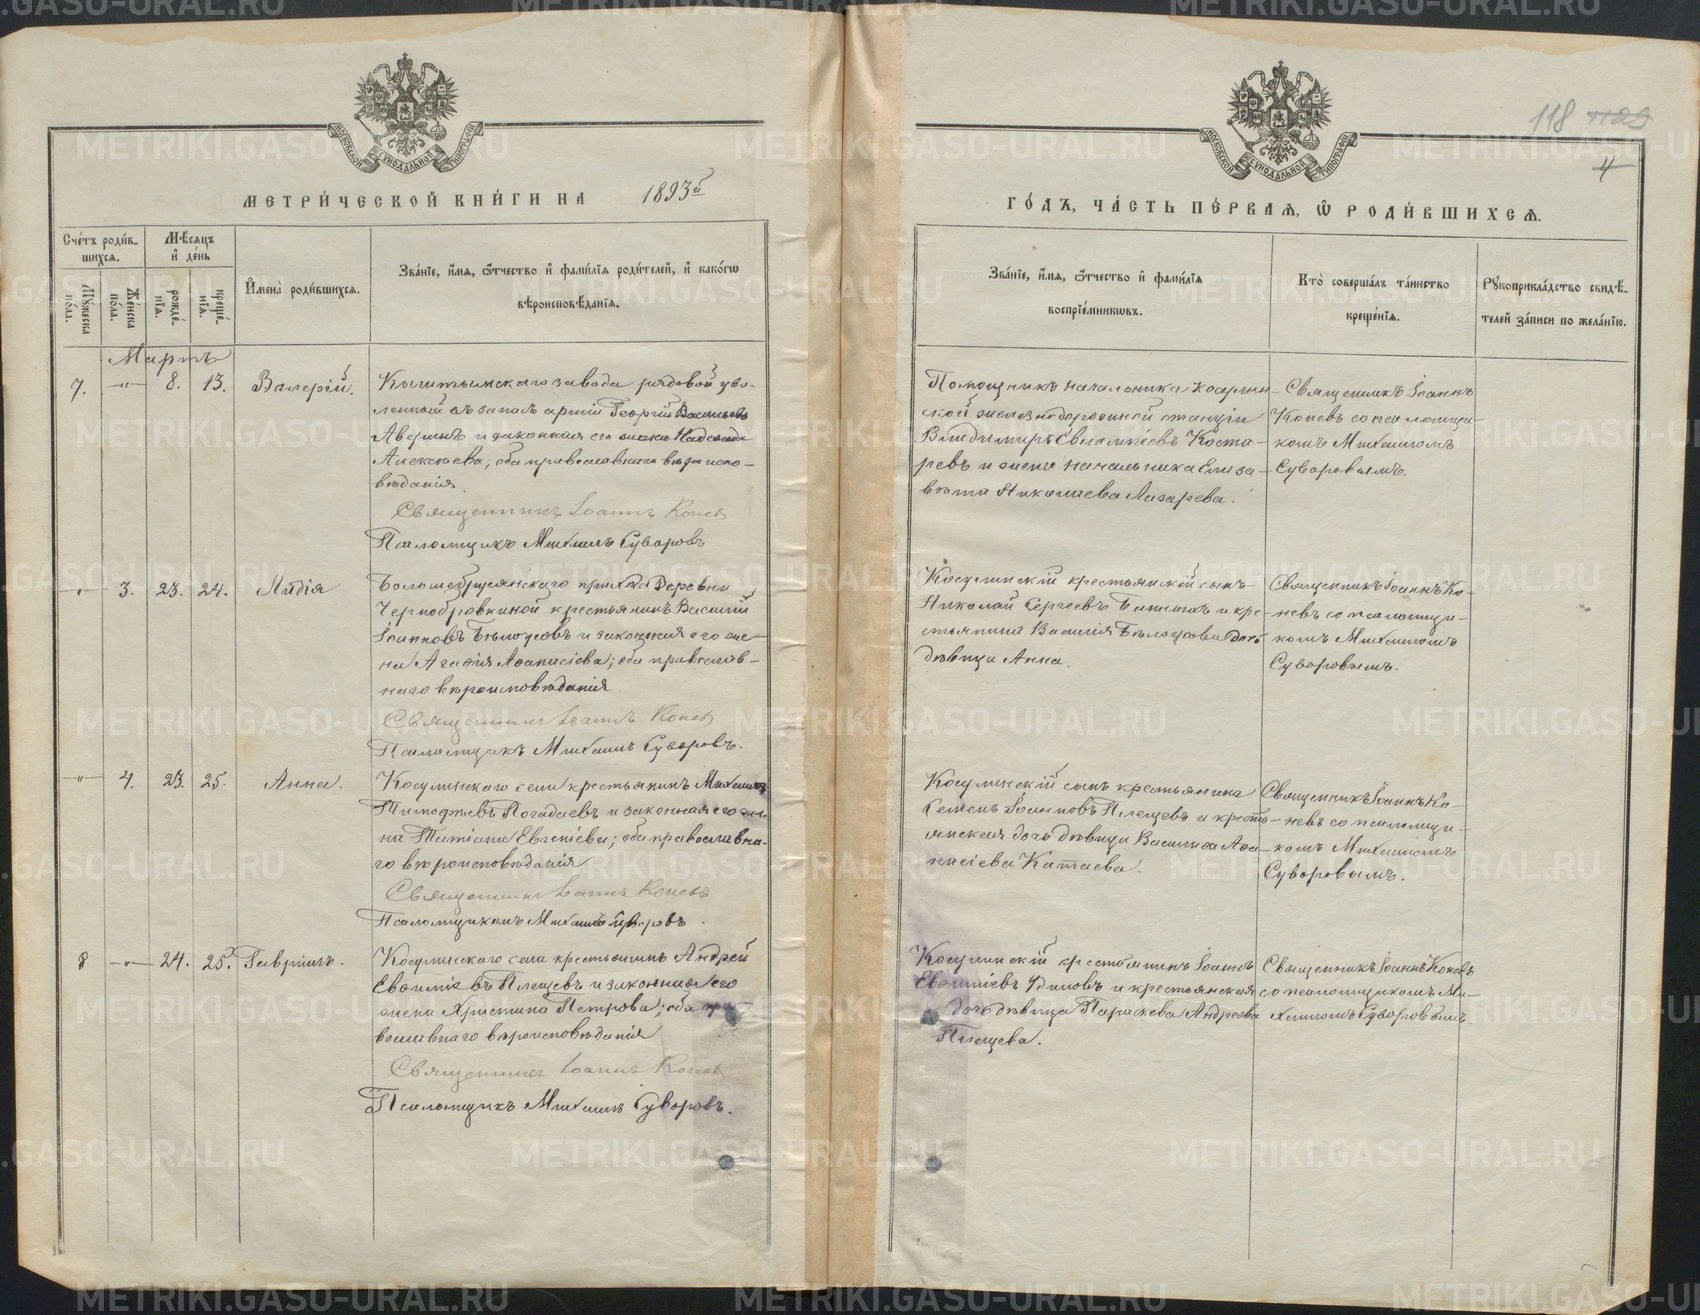 118 1129
4
МОСКОВСКОЙ СѴНОДАЛЬНОЙ ТИПОГРАФІИ
МОСКОВСКОЙ СѴНОДАЛЬНОЙ ТИПОГРАФІИ
МЕТРИ́ЧЕСКОЙ КНИ́ГИ НА 1893й
ГО́ДЪ, ЧА́СТЬ ПЕ́РВАѦ, Ѡ҆ РОДИ́ВШИХСѦ.
Сче́тъ роди́в-
шихсѧ.
Мѣ́сѧцъ
и҆ де́нь
Мꙋ́жеска по́ла.
Же́нска по́ла.
рожде́нїѧ.
креще́нїѧ.
И҆мена̀ роди́вшихсѧ.
Зва́нїе, и҆́мѧ, ѻ҆́тчество и҆ фами́лїѧ роди́телей, и҆ како́гѡ
вѣроисповѣ́данїѧ.
Зва́нїе, и҆́мѧ, ѻ҆́тчество и҆ фами́лїѧ
воспрїе́мникѡвъ.
Кто̀ соверша́лъ та́инство
креще́нїѧ.
Рꙋкоприкла́дство свидѣ́-
телей за́писи по жела́нїю.
Мартъ
7. —"— 8. 13. Валерій.
Кыштымскаго завода рядовой уво-
ленный въ запасъ арміи Георгій Васильевъ
Аверинъ и законная его жена Надежда
Алексѣева; оба православнаго вѣроиспо-
вѣданія.
Священникъ Іоаннъ Коневъ
Псаломщикъ Михаилъ Суворовъ
Помощникъ начальника
ской железнодорожной станціи
Владимиръ Коста-
ревъ и жена начальника Елиза-
вета Николаева Лазарева.
Священникъ Іоаннъ
Коневъ со псаломщи-
комъ Михаиломъ
Суворовымъ.
—"— 3. 23. 24. Лидія
прихода деревни
Чернобровкиной крестьянинъ Василій
Іоанновъ Бѣлоусовъ и законная его же-
на Агафія Аѳанасіева; оба православ-
наго вѣроисповѣданія
Священникъ Іоаннъ Коневъ
Псаломщикъ Михаилъ Суворовъ.
Косулинскій крестьянскій сынъ
Николай Сергеевъ и кре-
стьянина Василія Бѣлоусова дочь
дѣвица Анна.
Священникъ Іоаннъ Ко-
невъ со псаломщи-
комъ Михаиломъ
Суворовымъ.
—"— 4. 23. 25. Анна.
Косулинскаго села крестьянинъ Михаилъ
Тимоѳеевъ Погадаевъ и законная его же-
на Татіана Евгеніева; оба православна-
го вѣроисповѣданія
Священникъ Іоаннъ Коневъ
Псаломщикомъ Михаилъ Суворовъ.
Косулинскій сынъ крестьянина
Семенъ Іоанновъ Плещевъ и кресть-
янская дочь дѣвица Василиса Аѳа-
насіева Катаева.
Священникъ Іоаннъ Ко-
невъ со псаломщи-
комъ Михаиломъ
Суворовымъ.
8 —"— 24. 25. Гавріилъ.
Косулинскаго села крестьянинъ Андрей
Евѳиміевъ Плещевъ и законная его
жена Христина Петрова; оба пра-
вославнаго вѣроисповѣданія
Священникъ Іоаннъ Коневъ
Псаломщикъ Михаилъ Суворовъ.
Косулинскій крестьянинъ Іоаннъ
Евѳиміевъ и крестьянская
дочь дѣвица Параскева Андреева
Плещева.
Священникъ Іоаннъ Коневъ
со псаломщикомъ Ми-
хаиломъ Суворовымъ.
METRIKI.GASO-URAL.RU